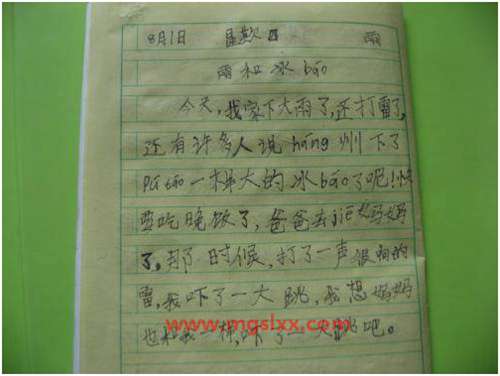 8月1日 星期日 雨
雨和冰báo
今天,我家下大雨了,还打雷了,
还有许多人说háng州下了
pú táo一样大的冰báo了呢!快
要吃晚饭了,爸爸去jiē妈妈
了,那时候,打了一声很响的
雷,我吓了一大跳,我想妈妈
也和我一样,吓了一大跳吧。
www.mgslxx.com